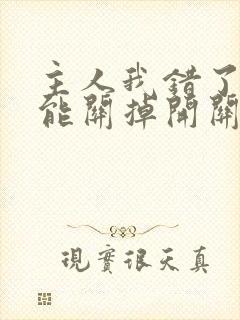 主人我错了
能關掉開關
現實很天真